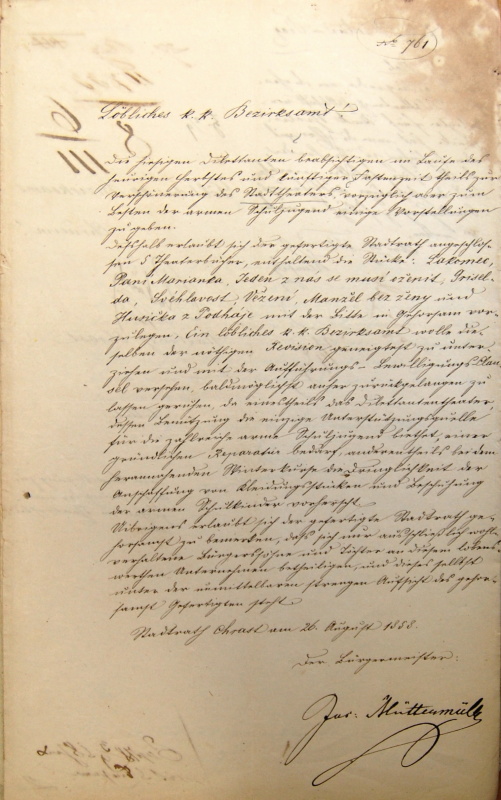 № 761
Löbliches k. k. Bezirksamt!
Die hiesigen Dilettanten beabsichtigen im Laufe des
heurigen Herbstes und künftiger Fastenzeit theils zur
Verschönerung des Stadttheaters, vorzüglich aber zum
Besten der armen Schuljugend einige Vorstellungen
zu geben.
Deshalb erlaubt sich der gefertigte Stadtrath angeschlos-
sen 8 Theaterbücher, enthaltend die Stücke: Lakomec,
Paní Marianka, Jeden z nás se musí oženit, Grisel-
da, Svéhlavost, Vězení, Manžel bez ženy und
Husička z Podháje mit der Bitte in Gehorsam vor-
zulegen, Ein löbliches k. k. Bezirksamt wolle die-
selben der nöthigen Revision geneigtest zu unter-
ziehen und mit der Aufführungs-Bewilligungs Clau-
sel versehen, baldmöglichst anher zurückgelangen zu
lassen geruhen, da einestheils das Dilettantentheater
dessen Benützung die einzige Unterstützungsquelle
für die zahlreiche arme Schuljugend liefert, einer
gründlichen Reparatur bedarf, anderentheils bei dem
herannahenden Winterkurse die Dringlichkeit der
Anschaffung von Kleidungsstücken und Beschuhung
der armen Schulkinder vorherrscht.
Uibrigens erlaubt sich der gefertigte Stadtrath ge-
horsamst zu bemerken, daß sich nur ausschließlich wohl-
verhaltene Bürgerssöhne und Töchter an diesem lobens-
werthen Unternehmen betheiligen, und dieses selbst
unter der unmittelbaren strengen Aufsicht des gehor-
samst Gefertigten steht.
Stadtrath Chrast am 26. August 1858.
Der Bürgermeister:
Jos: Hüttenmüll